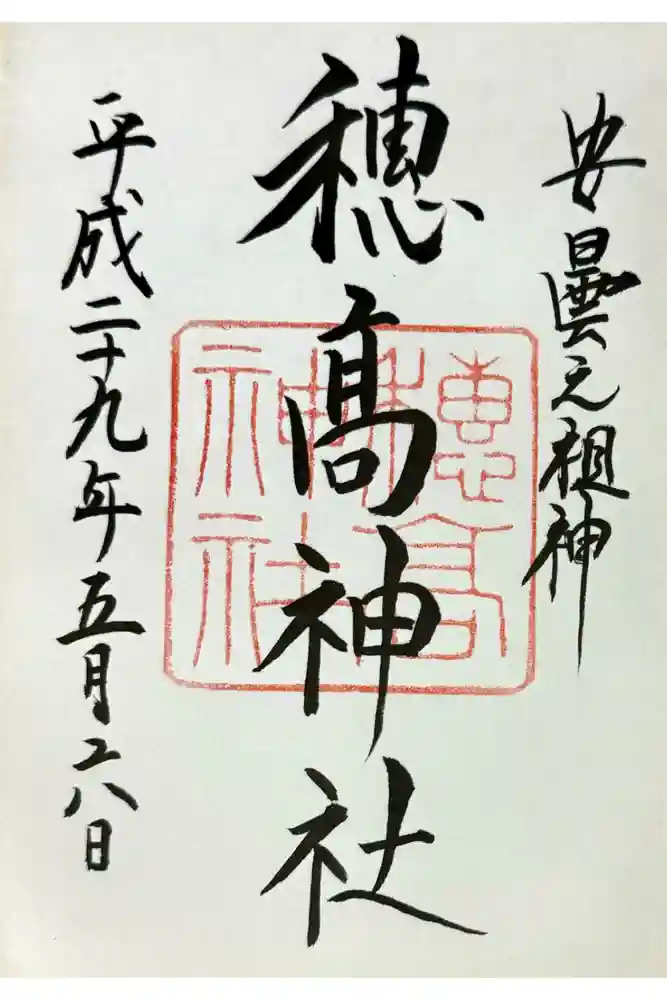 安曇元祖神
穂髙神社
穂高
神社
平成二十九年五月二八日